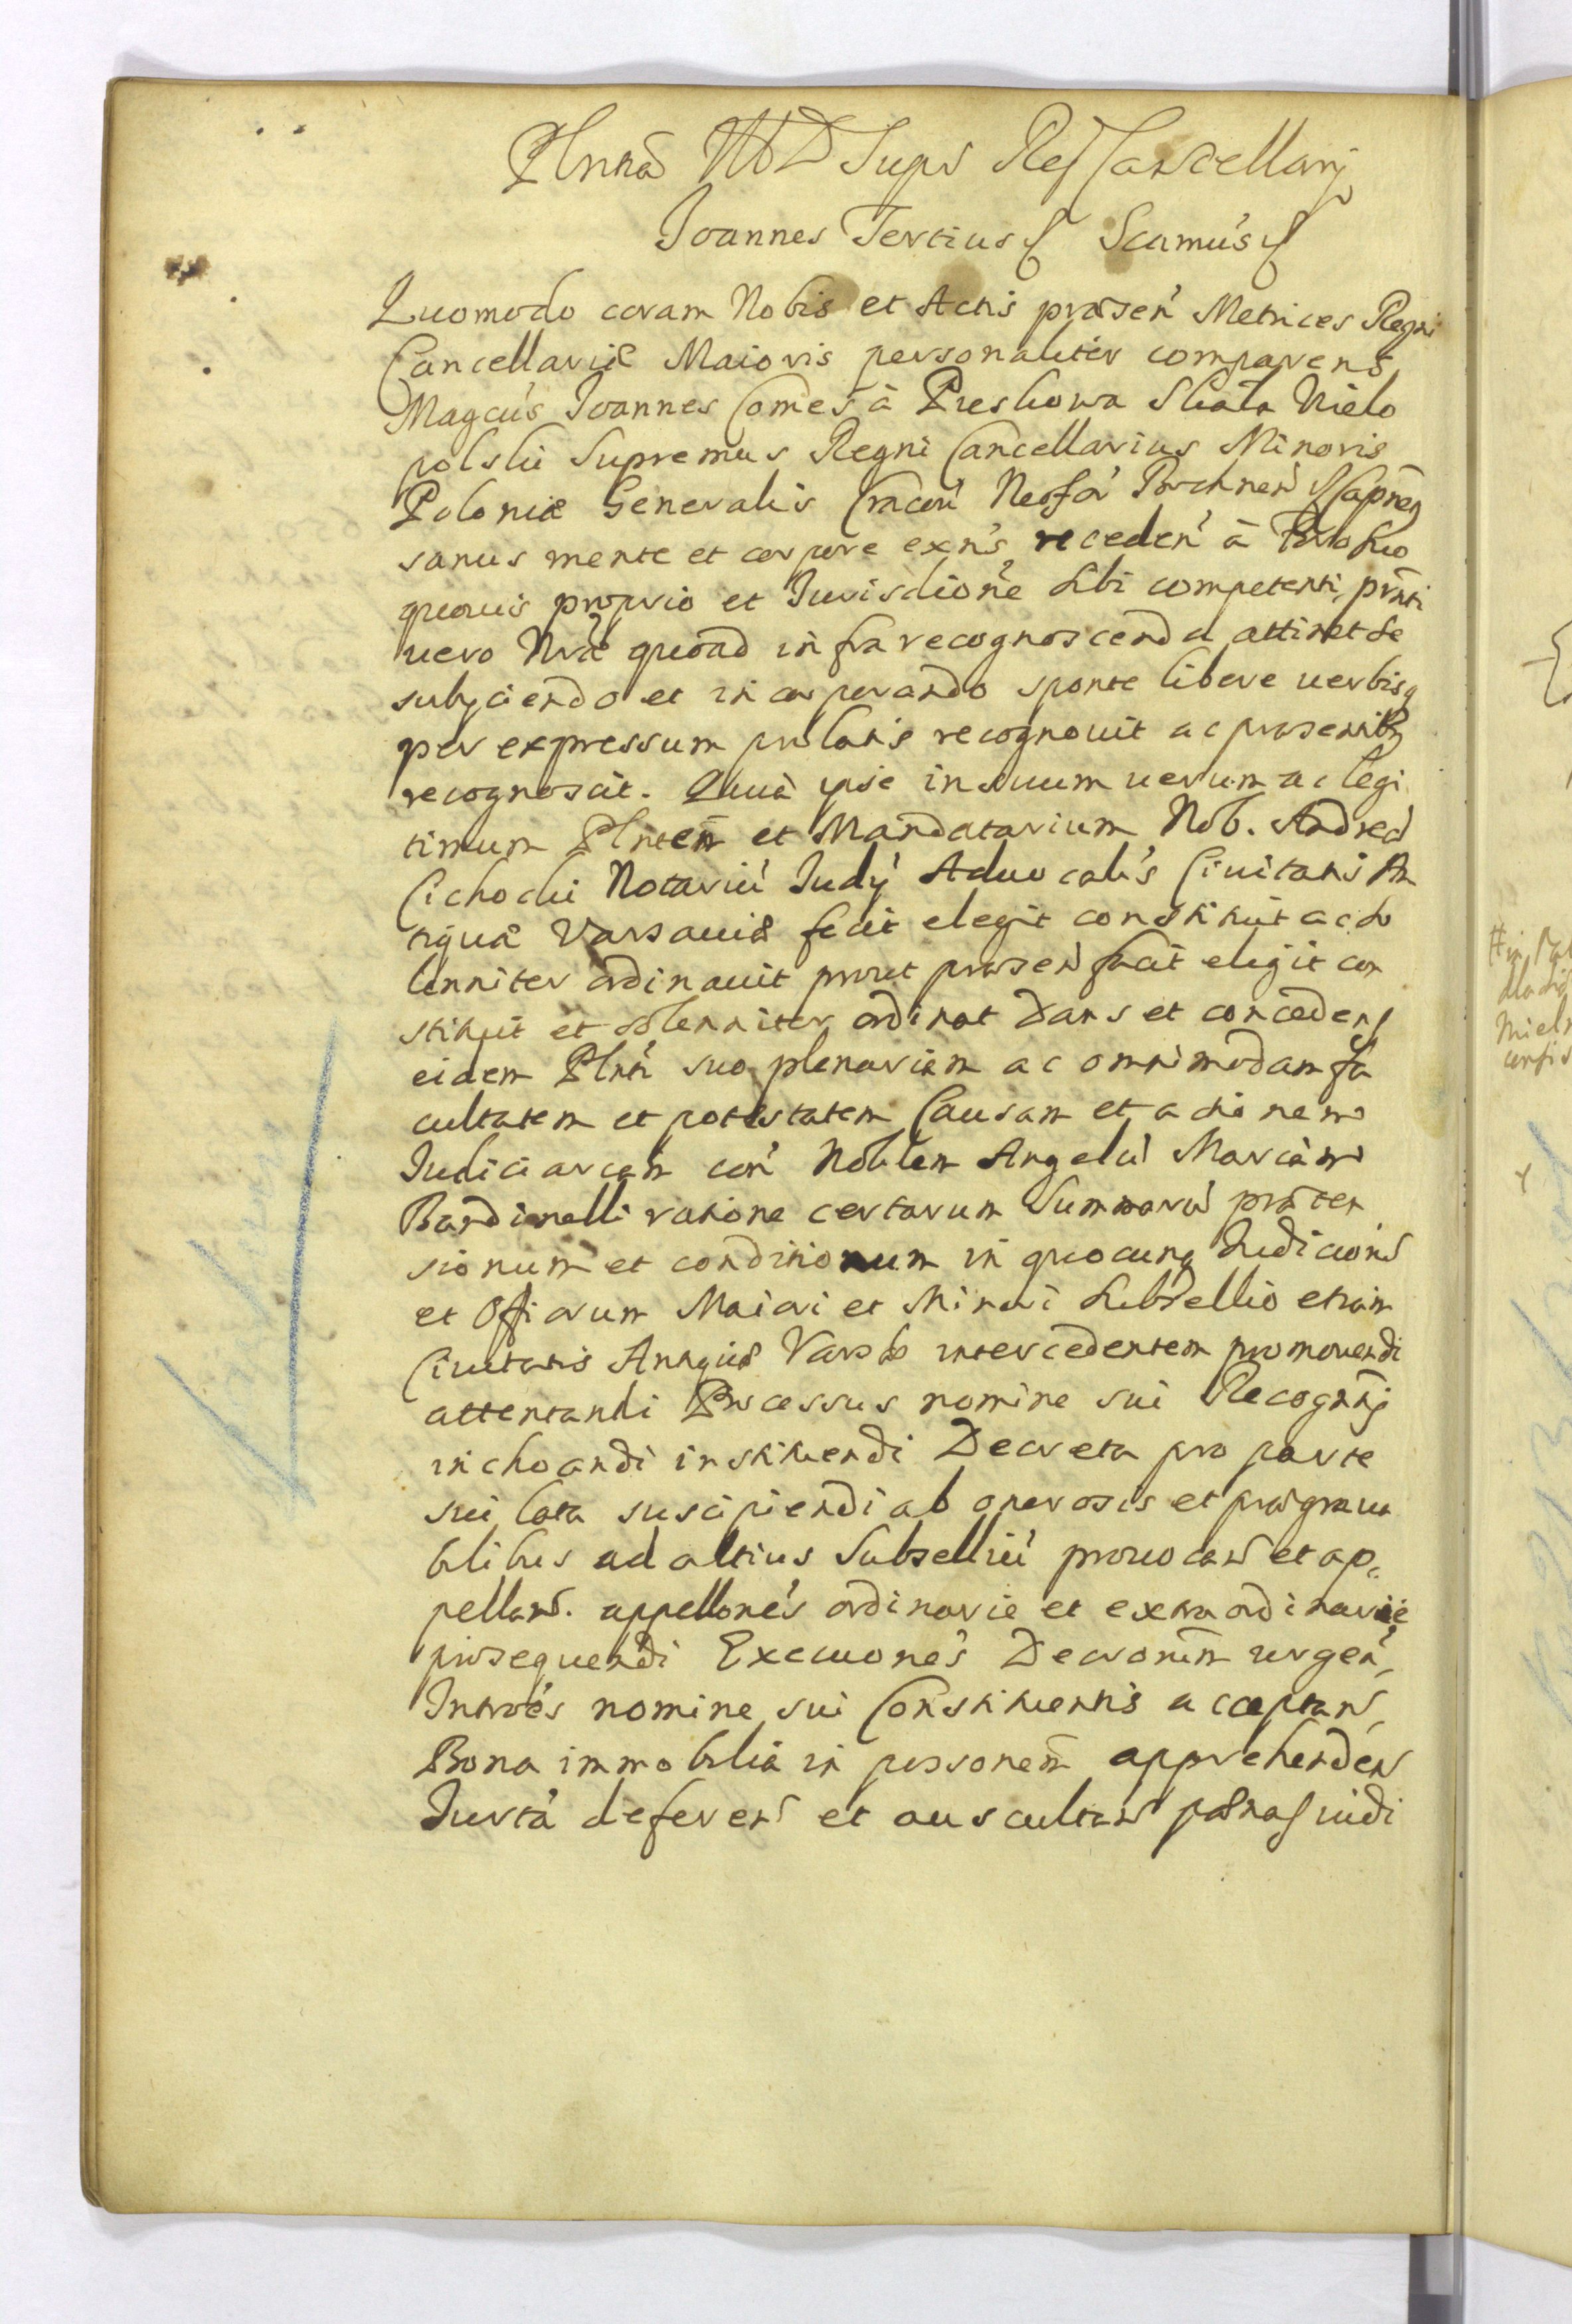 Plnna MD Supr Reg Cancellarij
Joannes Tertius Scimus
Quomodo coram Nobis et Actis præsen Metrices Regni
Cancellariæ Maioris personaliter comparens
Magcus Joannes Comes à Pieskowa Skała Wielo
polski Supremus Regni Cancellarius Minoris
Poloniæ Generalis Cracou Neosol Bochnen Capneg
sanus mente et corpore exns receden à Foro suo
quouis proprio et Jurisdione sibi competenti, prnti
uero Nræ quoad infra recognoscenda attinet se
subijciendo et incorporando sponte libere uerbisq
per expressum prolatis recognouit ac præsentibq
recognoscit. Quia ipse in suum uerum ac legi
timum Plntem et Mandatarium Nob. Andrea
Cichocki Notariu Judij Aduocalis Ciuitatis An
tiquæ Varsauiæ fecit elegit constituit ac so
lenniter ordinauit prout præsen facit eligit con
stituit et solenniter ordinat Dans et concedens
eidem Plnti suo plenariam ac omnimodam fa
cultatem et potestatem Causam et actionem
Judiciariam con Noblem Angelu Mariam
Bandinelli ratione certarum Summaru præten
sionum et conditionum in quocunq Judiciorus
et Officiorum Maiori et Minori Subsellio etiam
Ciuitatis Antiquæ Vars intercedentem promouendi
attentandi Processus nomine sui Recognntis
inchoandi instituendi Decreta pro parte
sui lata suscipiendi ab onerosis et prægraua
bilibus ad altius Subselliu prouocand et ap
pelland. appellones ordinarie et extraordinarie
prosequendi Execuones Decretorum urgen,
Introes nomine sui Constituentis acceptand,
Bona immobilia in possonem apprehenden
Jurta deferend et auscultand pænas uidi